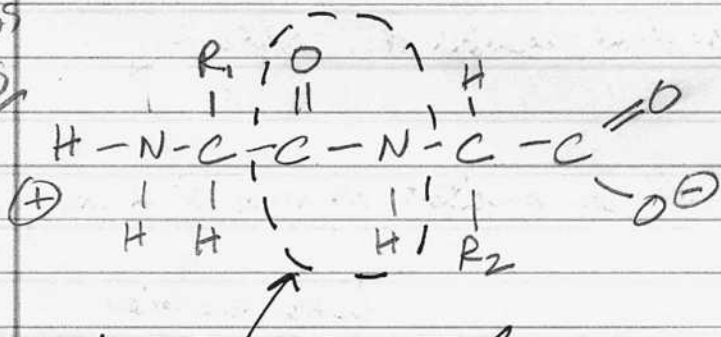 R₁ O H
|| O
H - N - C - C - N - C - C
⊕ O⊖
H H H R₂